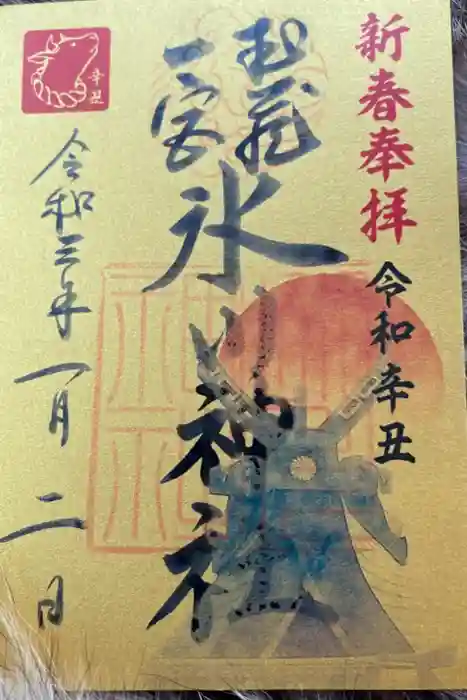 新春奉拝
令和辛丑
武蔵
一宮
氷川神社
令和三年
一月
二日
辛丑